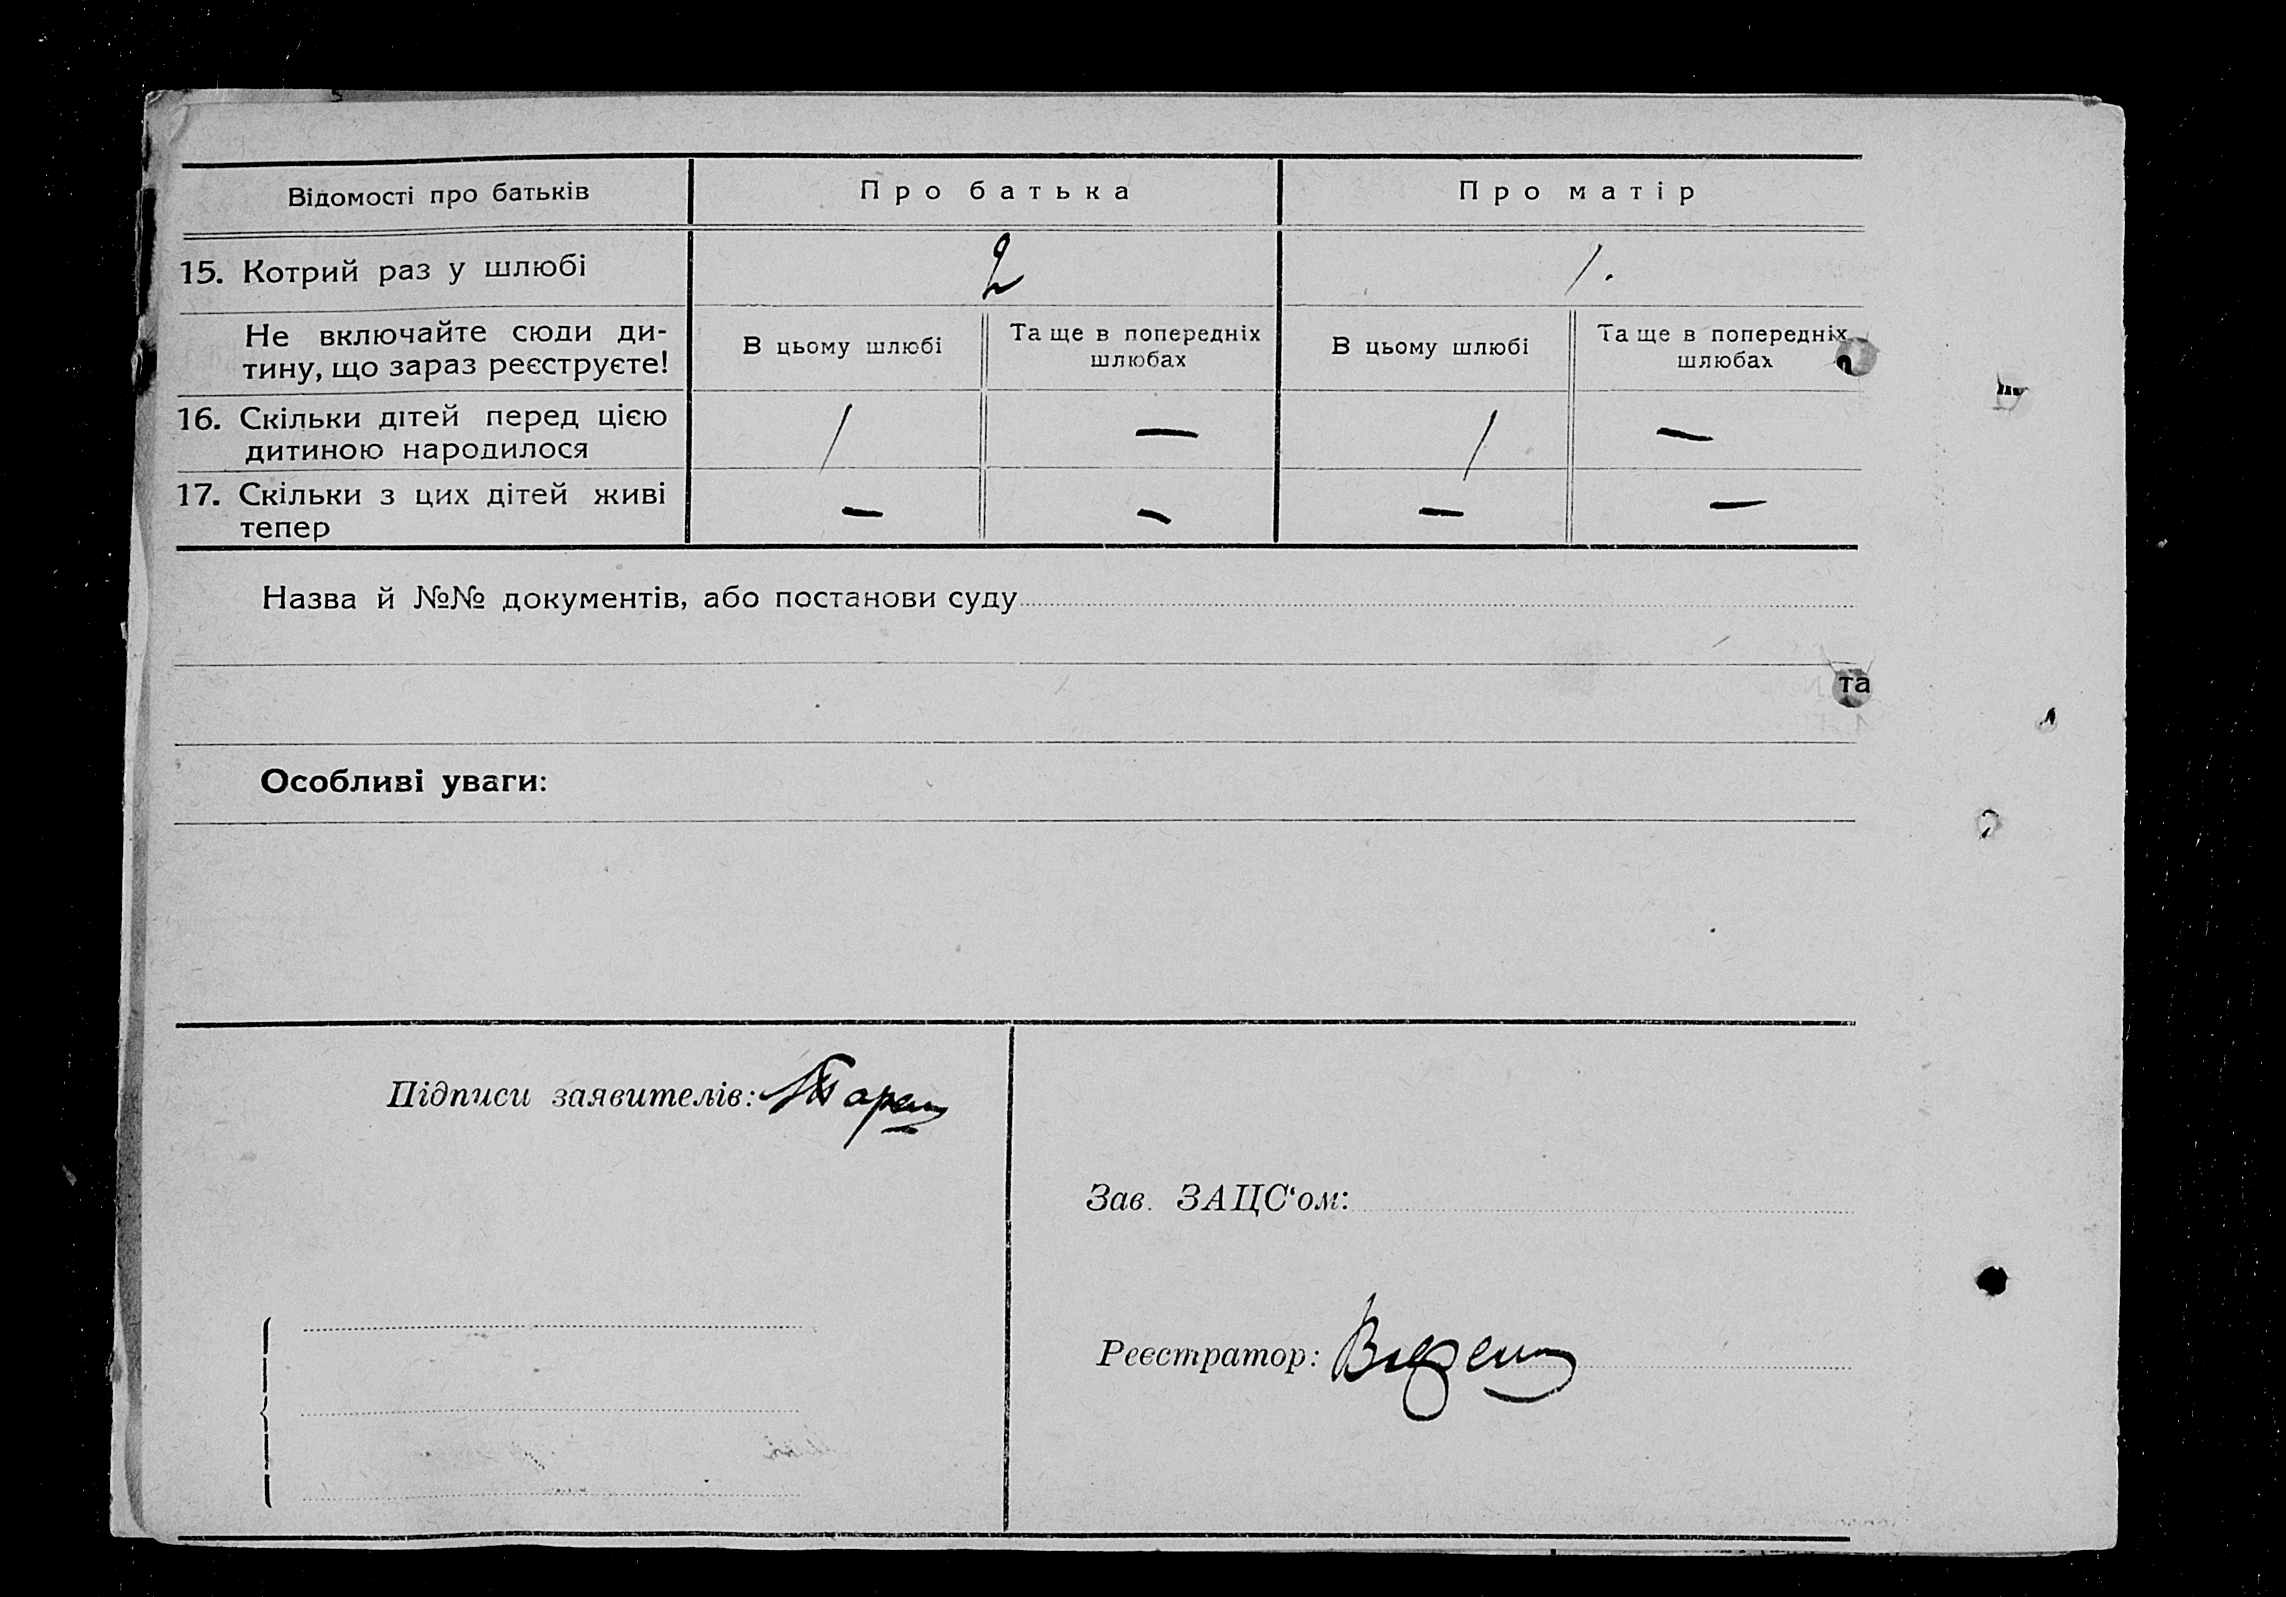 Відомості про батьків
Про батька
Про матір
15. Котрий раз у шлюбі
2
1.
Не включайте сюди ди-
тину, що зараз реєструєте!
В цьому шлюбі
Та ще в попередніх
шлюбах
В цьому шлюбі
Та ще в попередніх
шлюбах
16. Скільки дітей перед цією
дитиною народилося
1
—
1
—
17. Скільки з цих дітей живі
тепер
—
—
—
—
Назва й №№ документів, або постанови суду
та
Особливі уваги:
Підписи заявителів:
Зав. ЗАЦС‘ом:
Реєстратор: